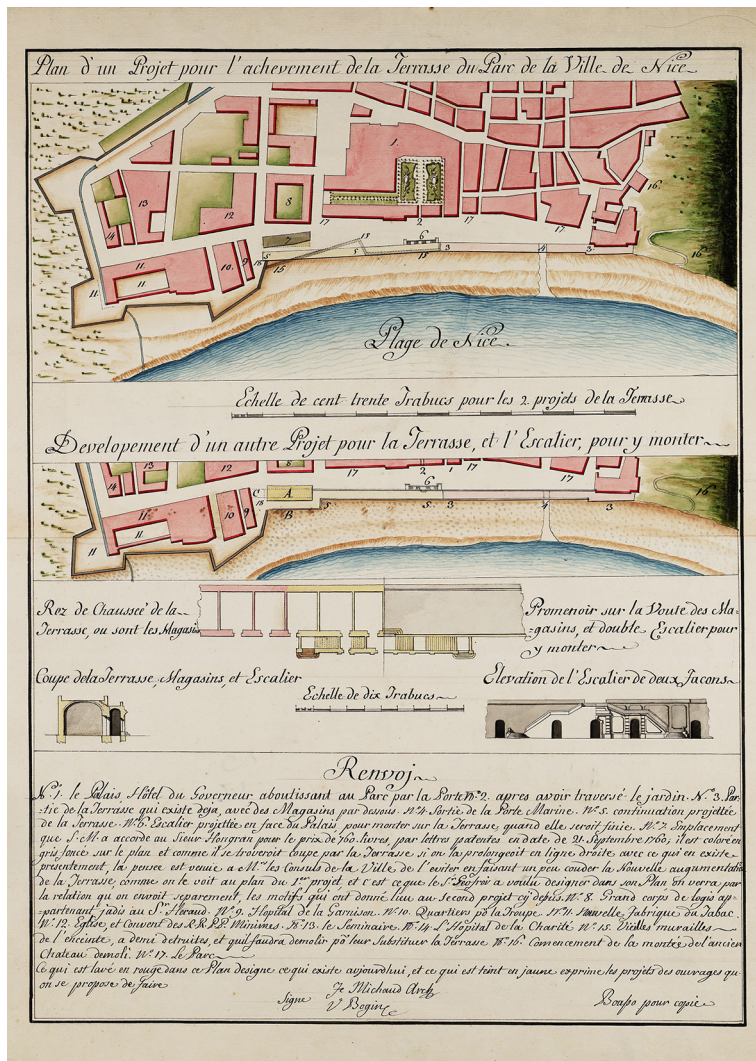 Plan d'un Projet pour l'achevement de la Terrasse du Parc de la Ville de Nice
1.
16.
13
14
12
8
17
2
17
17
16
7
13
6
3
4
3
5
5
15
15
18
11.
11
11.
10.
9
Plage de Nice.
Echelle de cent trente Trabucs pour les 2 projets de la Terrasse
Developement d'un autre Projet pour la Terrasse, et l'Escalier, pour y monter
14
13
12
8
17
2
1
17
17
16
C
A
6
18
B
5
5.
3
4
3
11
11.
11
10
9
Rez de Chausseé de la
Terrasse, ou sont les Magasis
Promenoir sur la Voute des Ma-
-gasins, et double Escalier pour
y monter
Coupe dela Terrasse, Magasins, et Escalier
Echelle de dix Trabucs
Elevation de l'Escalier de deux facons
Renvoj
N.º 1. le Palais Hôtel du Governeur aboutissant au Parc par la Porte N.º 2. apres avoir traversé le jardin. N.º 3. Par-
-tie de la Terrasse qui existe deja, avec des Magasins par dessous. N.º 4. Sortie de la Porte Marine. N.º 5. continuation projettée
de la Terrasse. N.º 6. Escalier projettée en face du Palais pour monter sur la Terrasse, quand elle seroit finie. N.º 7. Emplacement
que S. M. a accordé au Sieur Hongran pour le prix de 760. livres, par lettres patentes en date de 21. Septembre 1760, il est coloré en
gris foncé sur le plan et comme il se troveroit coupé par la Terrasse si on la prolongeoit en ligne droite avec ce qui en existe
présentement, la pensée est venue a M.rs les Consuls de la Ville de l'eviter en faisant un peu couder la Nouvelle augmentation
de la Terrasse comme on le voit au plan du 1.er projet, et c'est ce que le S.r Geofroi a voulu designer dans son Plan on verra par
la relation qu'on envoit separement, les motifs qui ont donné lieu au second projet cy depus. N.º 8. Grand corps de logis ap-
-partenant jadis au S.r Heraud. N.º 9. Hopital de la Garnison. N.º 10. Quartiers pō la Troupe. N.º 11. Nouvelle Fabrique du Tabac.
N.º 12. Eglise, et Convent des R.R. P.P. Minimes. N.º 13. le Seminaire. N.º 14. L'Hôpital de la Charité N.º 15. Vieilles murailles
de l'enceinte, a demi detruites, et qu'il faudra demolir pō leur Substituer la Terrasse N.º 16. Comencement de la montée de l'ancien
Chateau demoli. N.º 17. Le Parc
Ce qui est lavé en rouge dans ce Plan designe ce qui existe aujourdhui, et ce qui est teint en jaune exprime les projets des ouvrages qu'
on se propose de faire
Signe
Je Michaud Arch
V Bogin
Boasso pour copie